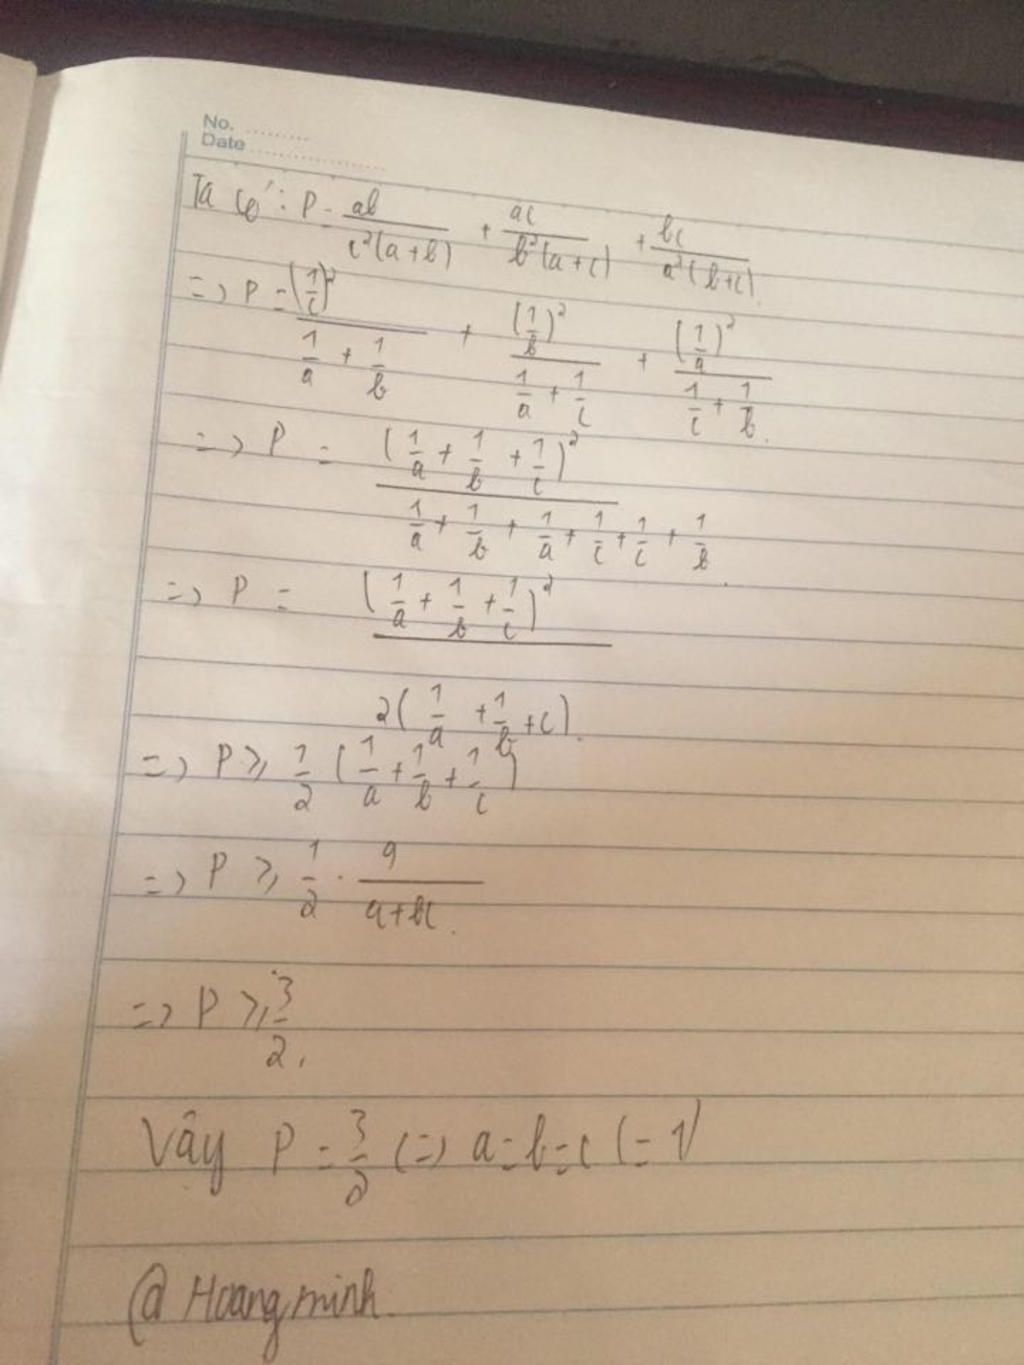 No. ..........
Date ....................
Ta có: P = ab/(c²(a+b)) + ac/(b²(a+c)) + bc/(a²(b+c)).
=> P = (1/c)²/(1/a + 1/b) + (1/b)²/(1/a + 1/c) + (1/a)²/(1/c + 1/b).
=> P = (1/a + 1/b + 1/c)²/(1/a + 1/b + 1/a + 1/c + 1/c + 1/b).
=> P = (1/a + 1/b + 1/c)²/(2(1/a + 1/b + c)).
=> P ⩾ 1/2 (1/a + 1/b + 1/c)
=> P ⩾ 1/2 . 9/(a+bc).
=> P ⩾ 3/2.
Vậy P = 3/2 (=) a=b=c (=1)
@ Hoang minh.